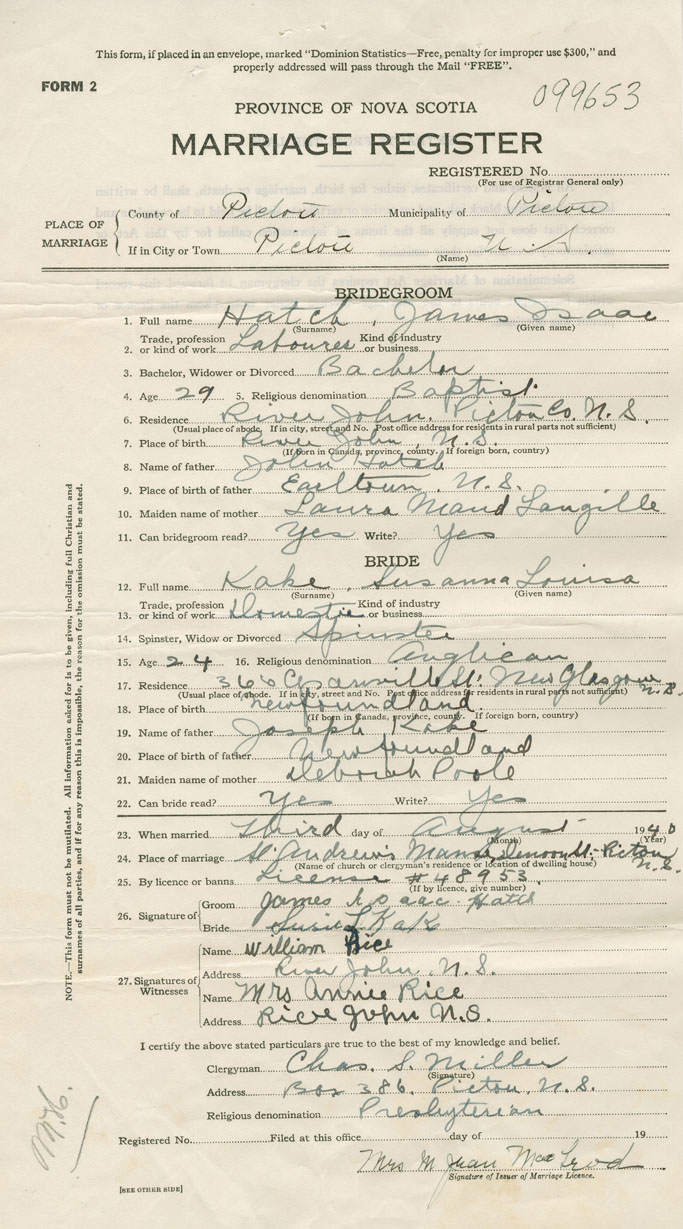 This form, if placed in an envelope, marked "Dominion Statistics—Free, penalty for improper use $300," and
properly addressed will pass through the Mail "FREE".
FORM 2
099653
PROVINCE OF NOVA SCOTIA
MARRIAGE REGISTER
REGISTERED No.
(For use of Registrar General only)
PLACE OF MARRIAGE
County of Pictou Municipality of Pictou
If in City or Town Pictou N. S.
(Name)
BRIDEGROOM
1. Full name Hatch, James Isaac
(Surname) (Given name)
2. Trade, profession or kind of work Labourer Kind of industry or business
3. Bachelor, Widower or Divorced Bachelor
4. Age 29 5. Religious denomination Baptist
6. Residence River John, Pictou Co. N. S.
(Usual place of abode. If in city, street and No. Post office address for residents in rural parts not sufficient)
7. Place of birth River John, N.S.
(If born in Canada, province, county. If foreign born, country)
8. Name of father John Hatch
9. Place of birth of father Earltown, N.S.
10. Maiden name of mother Laura Maud Langille
11. Can bridegroom read? Yes Write? Yes
BRIDE
12. Full name Kake, Susanna Louisa
(Surname) (Given name)
13. Trade, profession or kind of work Domestic Kind of industry or business
14. Spinster, Widow or Divorced Spinster
15. Age 24 16. Religious denomination Anglican
17. Residence 366 St. New Glasgow N.S.
(Usual place of abode. If in city, street and No. Post office address for residents in rural parts not sufficient)
18. Place of birth Newfoundland
(If born in Canada, province, county. If foreign born, country)
19. Name of father Joseph Kake
20. Place of birth of father Newfoundland
21. Maiden name of mother Deborah Poole
22. Can bride read? Yes Write? Yes
23. When married Third day of August 1940
(Month) (Year)
24. Place of marriage St. Andrew's Manse, Denoon St. Pictou N.S.
(Name of church or clergymen's residence or location of dwelling house)
25. By licence or banns License #48953
(If by licence, give number)
26. Signature of
Groom James Isaac Hatch
Bride Susie L Kak
27. Signatures of Witnesses
Name William Rice
Address River John, N.S.
Name Mrs Annie Rice
Address River John N.S.
I certify the above stated particulars are true to the best of my knowledge and belief.
Clergyman Chas. S. Miller
(Signature)
Address Box 386, Pictou, N.S.
Religious denomination Presbyterian
Registered No. Filed at this office day of 19
Mrs M Jean MacLeod
Signature of Issuer of Marriage Licence.
[SEE OTHER SIDE]
NOTE.—This form must not be mutilated. All information asked for is to be given, including full Christian and
surnames of all parties, and if for any reason this is impossible, the reason for the omission must be stated.